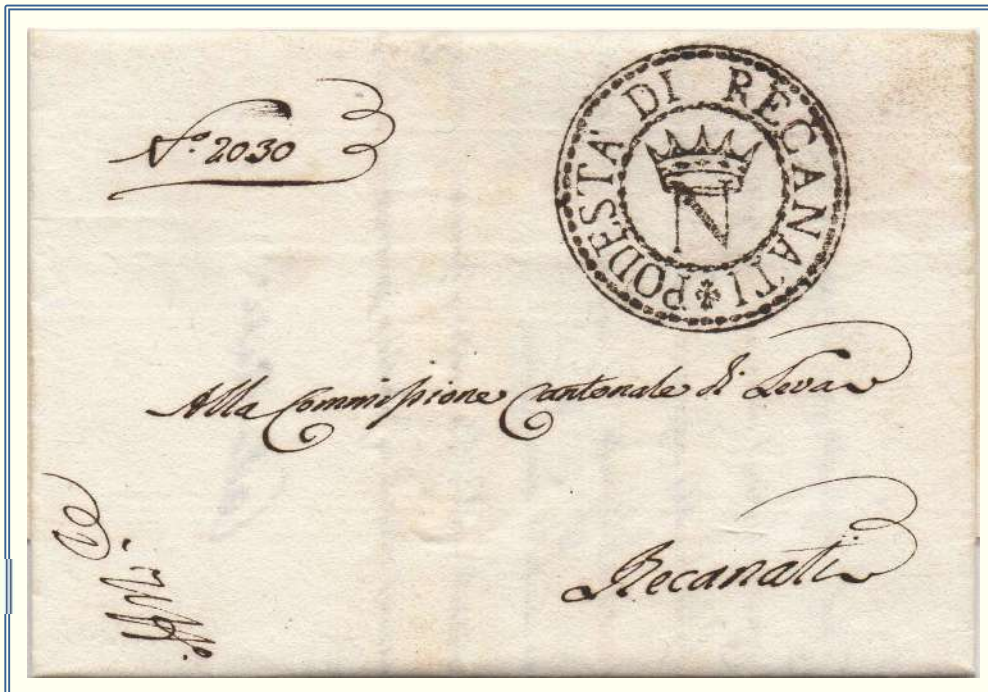 N.° 2030
PODESTA' DI RECANATI
N
Alla Commissione Cantonale di Leva
Recanati